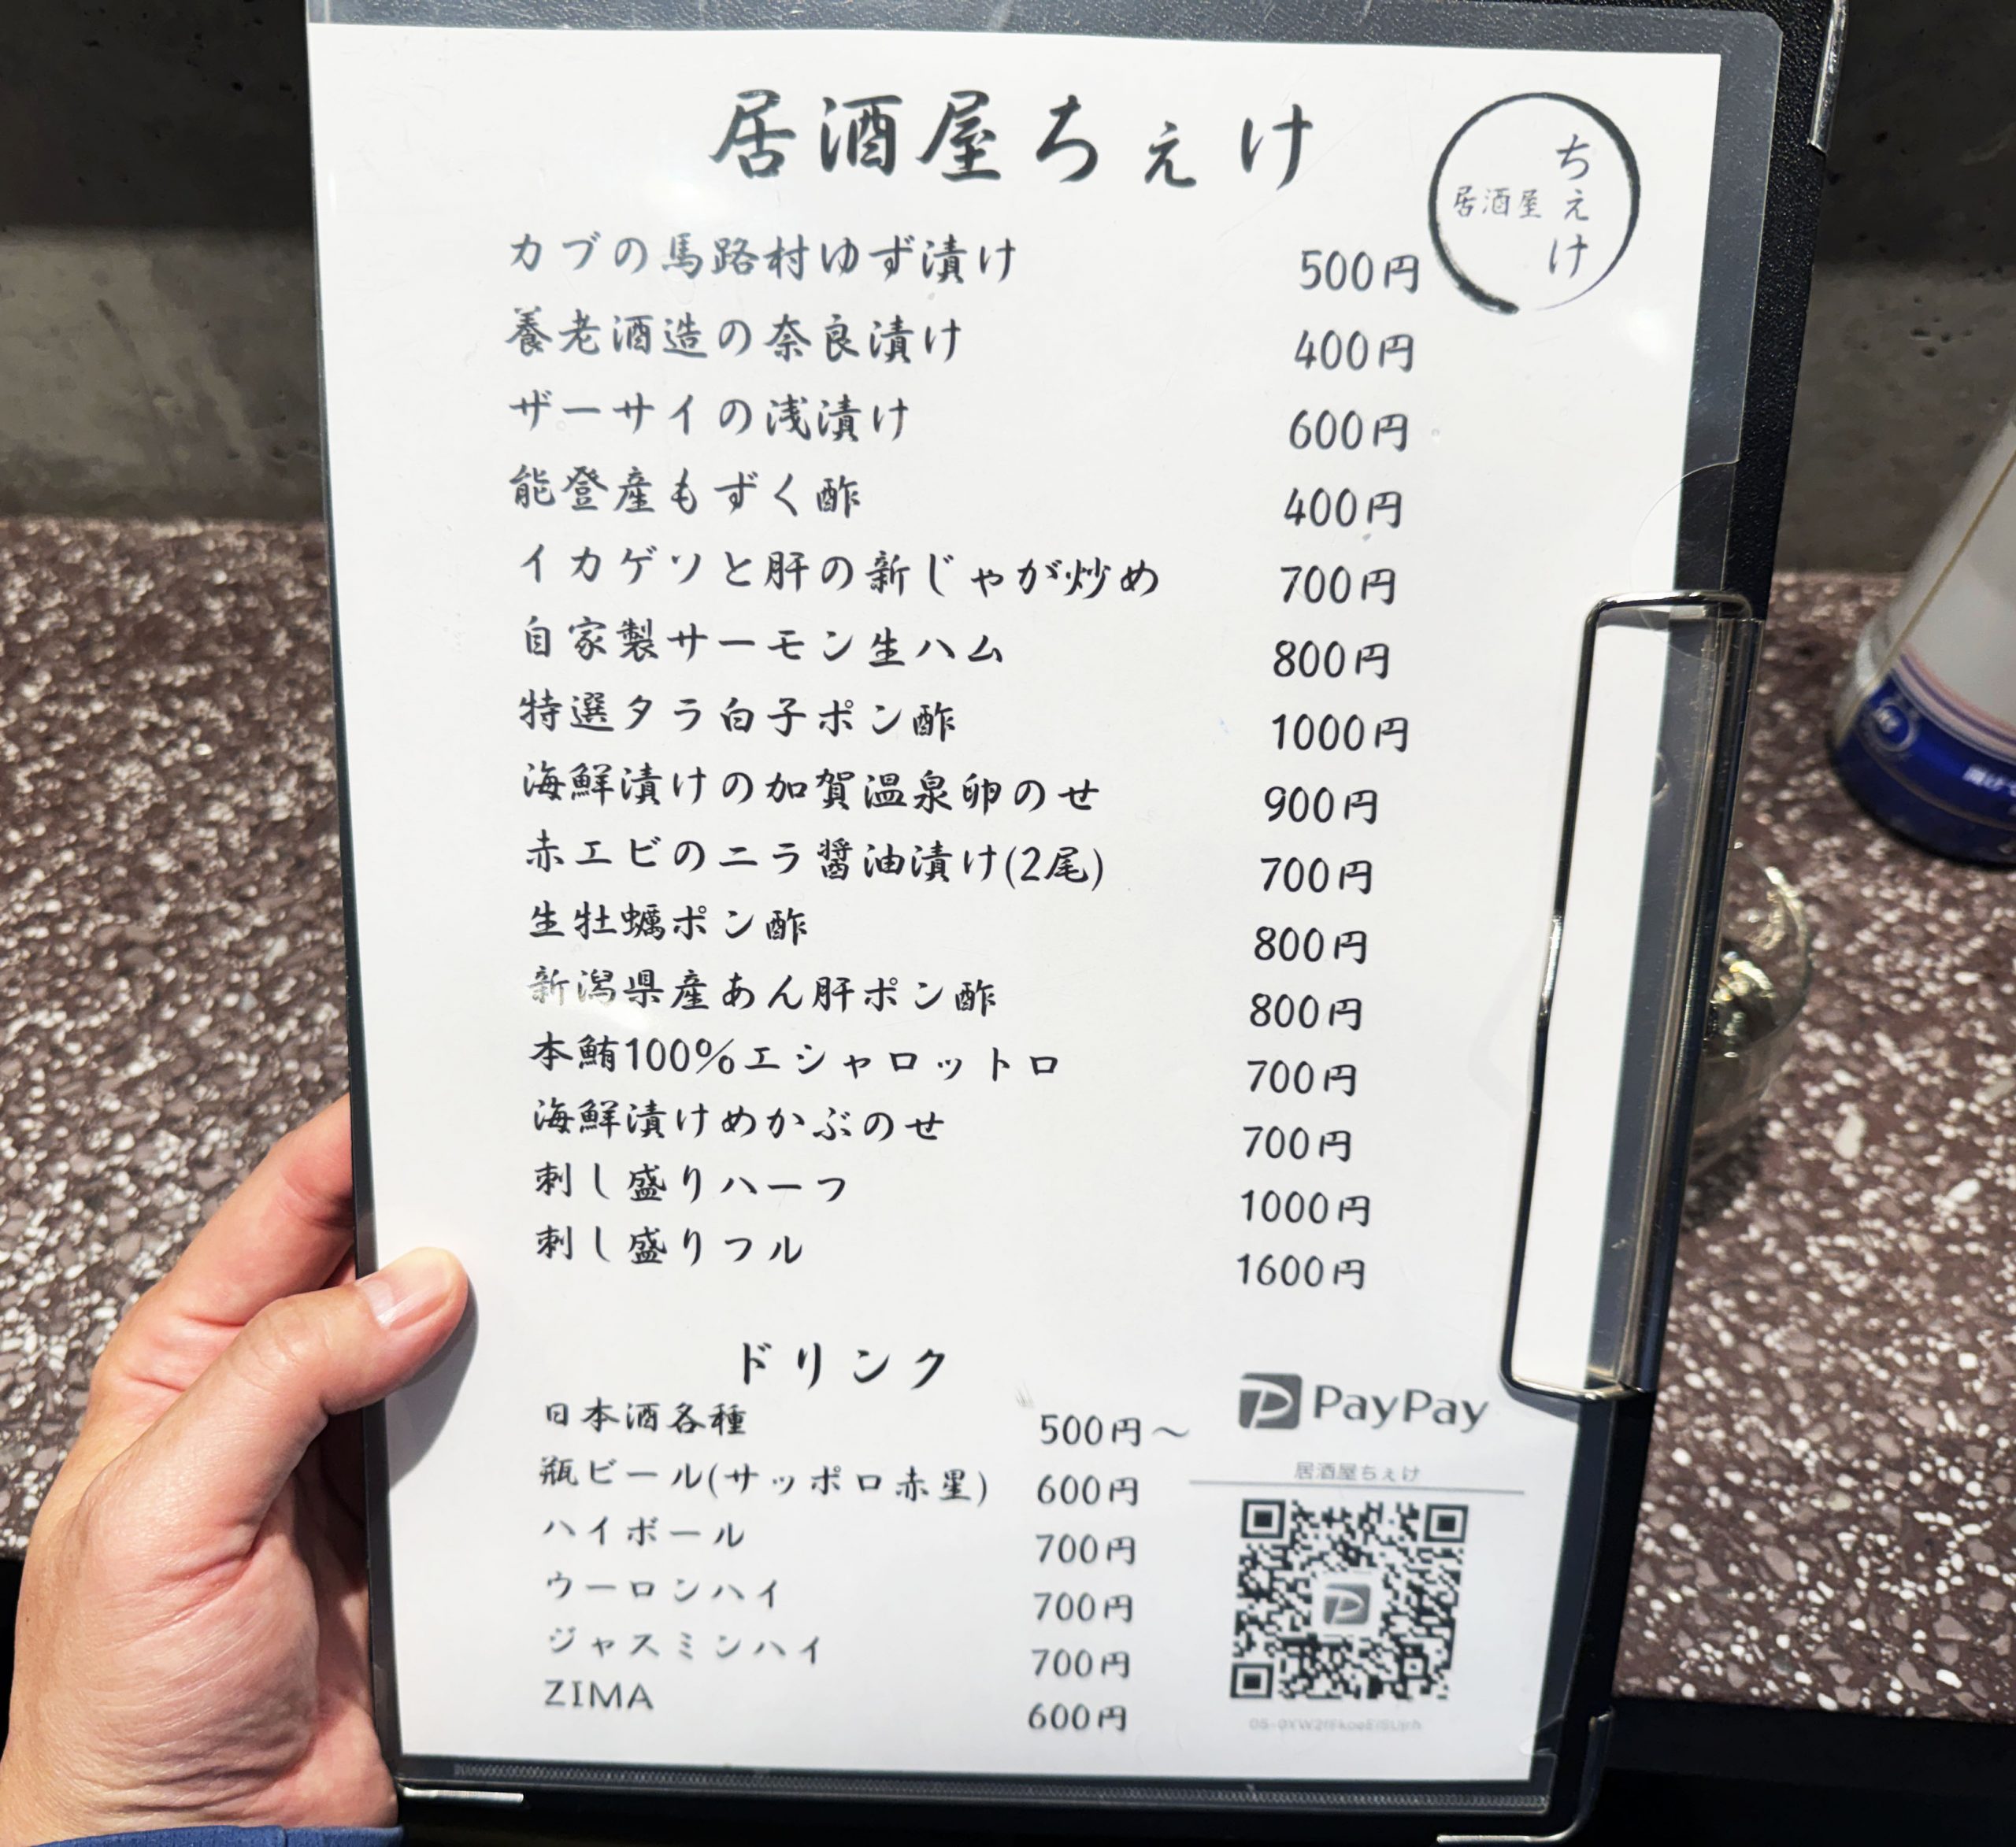 居酒屋ちぇけ
居酒屋 ちぇけ
カブの馬路村ゆず漬け 500円
養老酒造の奈良漬け 400円
ザーサイの浅漬け 600円
能登産もずく酢 400円
イカゲソと肝の新じゃが炒め 700円
自家製サーモン生ハム 800円
特選タラ白子ポン酢 1000円
海鮮漬けの加賀温泉卵のせ 900円
赤エビのニラ醤油漬け(2尾) 700円
生牡蠣ポン酢 800円
新潟県産あん肝ポン酢 800円
本鮪100%エシャロットロ 700円
海鮮漬けめかぶのせ 700円
刺し盛りハーフ 1000円
刺し盛りフル 1600円
ドリンク
日本酒各種 500円〜
瓶ビール(サッポロ赤星) 600円
ハイボール 700円
ウーロンハイ 700円
ジャスミンハイ 700円
ZIMA 600円
PayPay
居酒屋ちぇけ